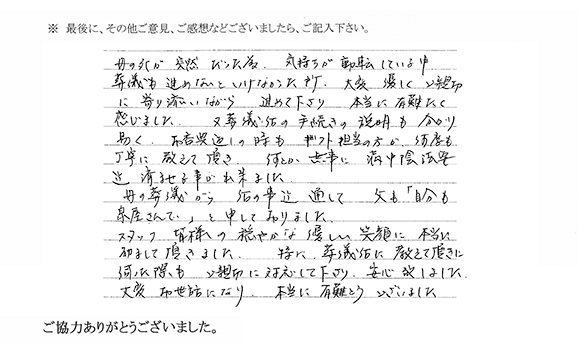 ※ 最後に、その他ご意見、ご感想などございましたら、ご記入下さい。
母の死が突然だった為、気持ちが動転している中
葬儀も進めないといけなかったですが、大変優しくご親切
に寄り添いながら 進めて下さり 本当に有難たく
感じました。 又葬儀後の手続きの説明も 分かり
易く、 香典返しの時も ギフト担当の方が 何度も
丁寧に教えて頂き、 何とか無事に 満中陰法要
迄 済ませる事が出来ました。
母の葬儀から 後の事迄通して 父も「自分も
泉屋さんで」と申しておりました。
スタッフ皆様の穏やかな優しい笑顔に本当に
励まして頂きました。 特に、葬儀後に教えて頂きに
伺った際も ご親切に対応して下さり、安心致しました。
大変お世話になり、 本当に有難とうございました
ご協力ありがとうございました。